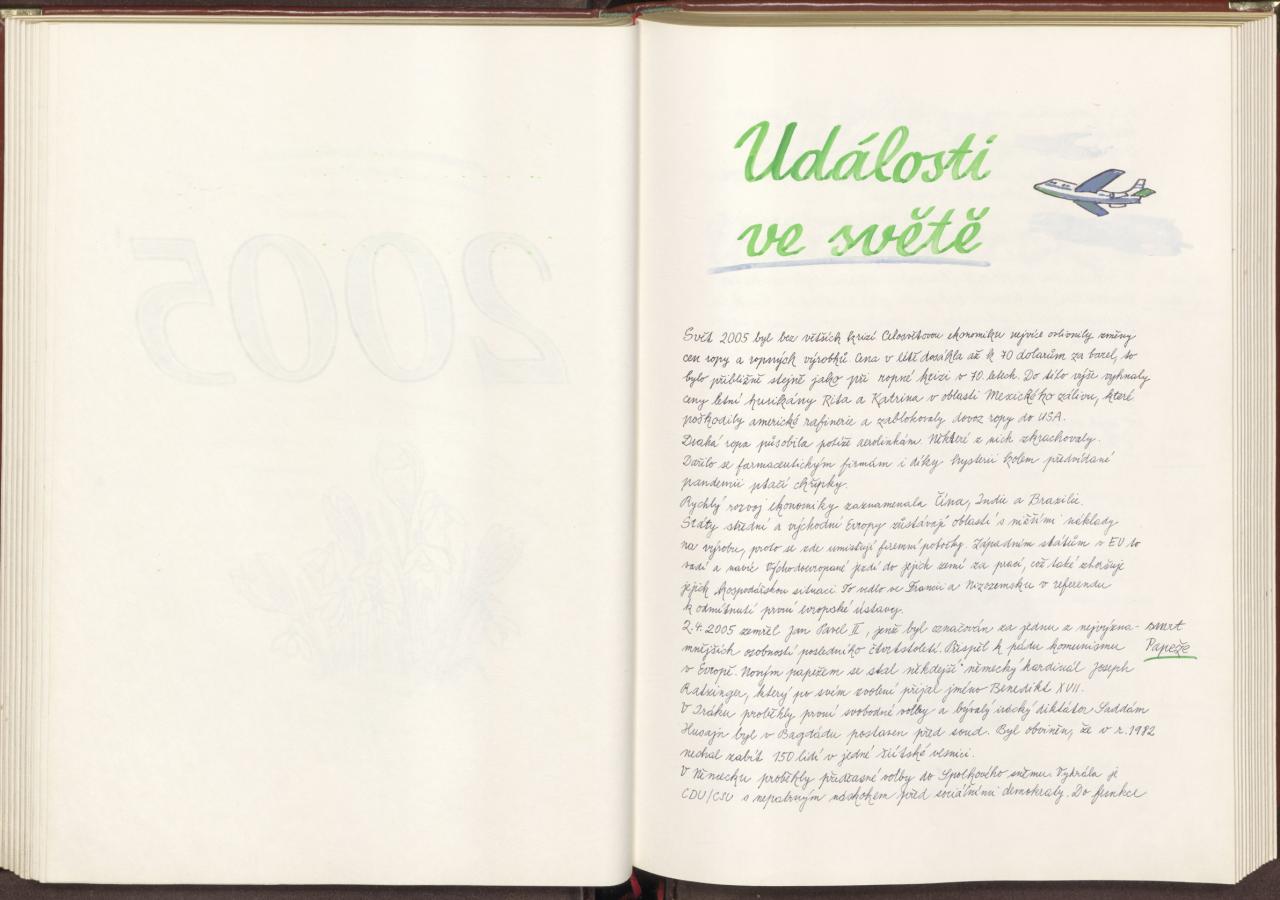 2005
Události
ve světě
Svět 2005 byl bez větších krizí Celosvětovou ekonomiku nejvíce ovlivnily změny
cen ropy a ropných výrobků Cena v létě dosáhla až k 70 dolarům za barel, to
bylo přibližně stejně jako při ropné krizi v 70. letech. Do této výše vyhnaly
ceny letní hurikány Rita a Katrina v oblasti Mexického zálivu, které
poškodily americké rafinerie a zablokovaly dovoz ropy do USA.
Drahá ropa působila potíže aerolinkám. Některé z nich zkrachovaly.
Dařilo se farmaceutickým firmám i díky hysterii kolem předvídané
pandemii ptačí chřipky.
Rychlý rozvoj ekonomiky zaznamenala Čína, Indie a Brazílie.
Státy střední a východní Evropy zůstávají oblastí s nižšími náklady
na výrobu, proto se zde umisťují firemní pobočky. Západním státům v EU to
vadí a navíc Východoevropané jezdí do jejich zemí za prací, což také zhoršuje
jejich hospodářskou situaci To vedlo ve Francii a Nizozemsku v referendu
k odmítnutí první evropské ústavy.
2.4.2005 zemřel Jan Pavel II, jenž byl označován za jednu z nejvýzna-
mnějších osobností posledního čtvrtstoletí. Přispěl k pádu komunismu
v Evropě. Novým papežem se stal někdejší německý kardinál Joseph
Ratzinger, který po svém zvolení přijal jméno Benedikt XVII.
V Iráku proběhly první svobodné volby a bývalý irácký diktátor Saddám
Husajn byl v Bagdádu postaven před soud. Byl obviněn, že v r. 1982
nechal zabít 150 lidí v jedné šiítské vesnici.
V Německu proběhly předčasné volby do Spolkového sněmu. Vyhrála je
CDU/CSU s nepatrným náskokem před sociálními demokraty. Do funkce
smrt
Papeže